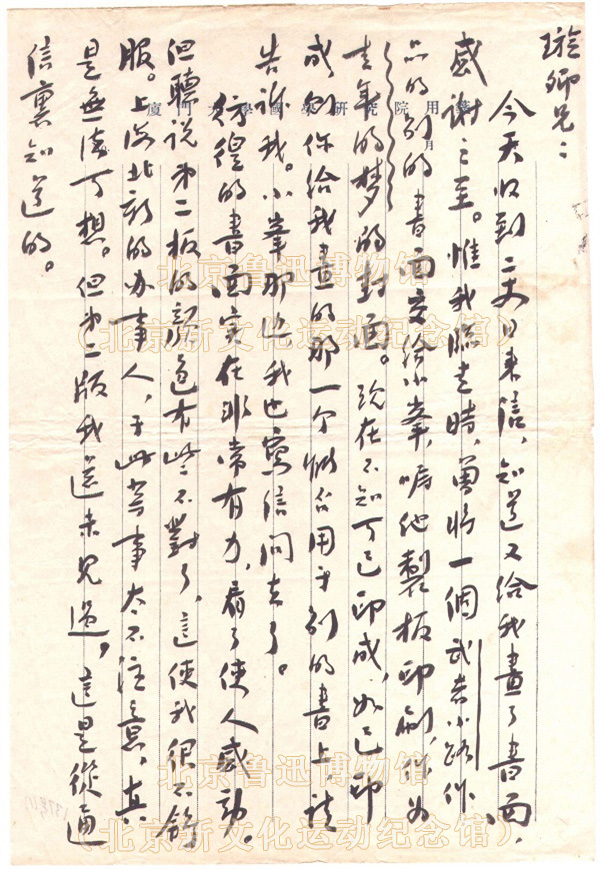 璇卿兄：
今天收到二十四日来信，知道又给我畫了書面，
感谢之至。惟我臨走時，曾将一個武者小路作
品的别的書面交给小峯，嘱他製板印刷，作为
青年的梦的封面。现在不知可已印成，如已印
成，则你给我畫的那一个能否用于别的書上，請
告诉我。小峯那边，我也寫信问去了。
彷徨的書面实在非常有力，看了使人感动。
但聽说第二板的颜色有些不對了，這使我很不舒
服。上海北新的办事人，于此等事太不注意，真
是無法可想。但第二版我還未见過，這是從通
信裏知道的。
廈門大學國學研究院用箋
月
北京鲁迅博物馆
（北京新文化运动纪念馆）
北京鲁迅博物馆
（北京新文化运动纪念馆）